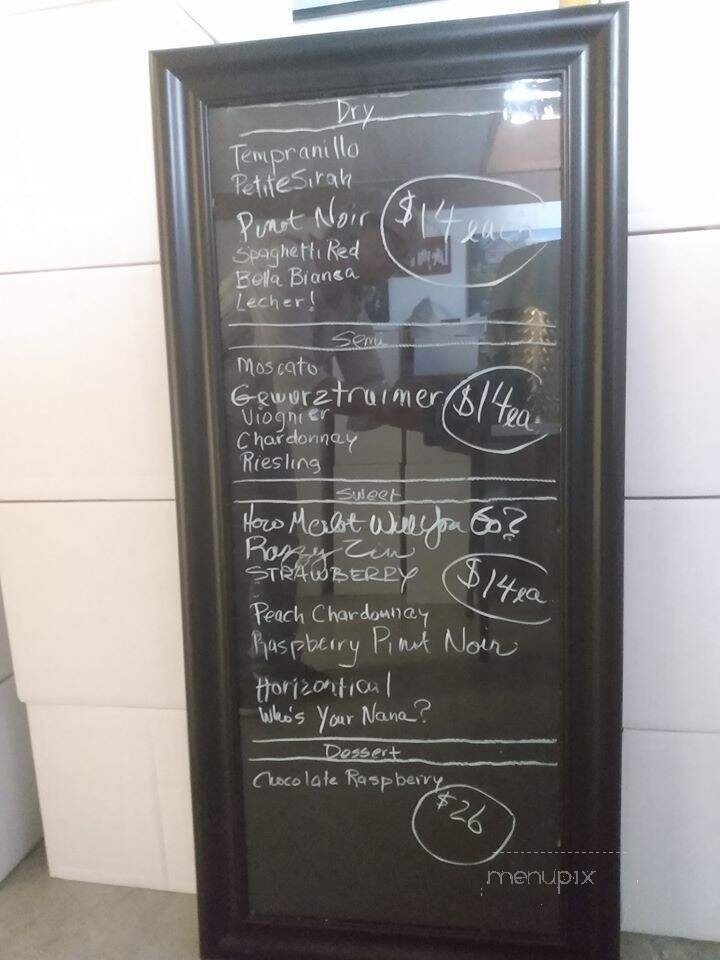 Dry
Tempranillo
Petite Sirah
Pinot Noir
$14 each
Spaghetti Red
Bella Bianca
Lecher!
Semi
Moscato
Gewurztraimer
$14 ea.
Viognier
Chardonnay
Riesling
Sweet
How Merlot Will You Go?
Razzy Zin
STRAWBERRY
$14 ea
Peach Chardonnay
Raspberry Pinot Noir
Horizontical
Who's Your Nana?
Dessert
Chocolate Raspberry
$26
menupix